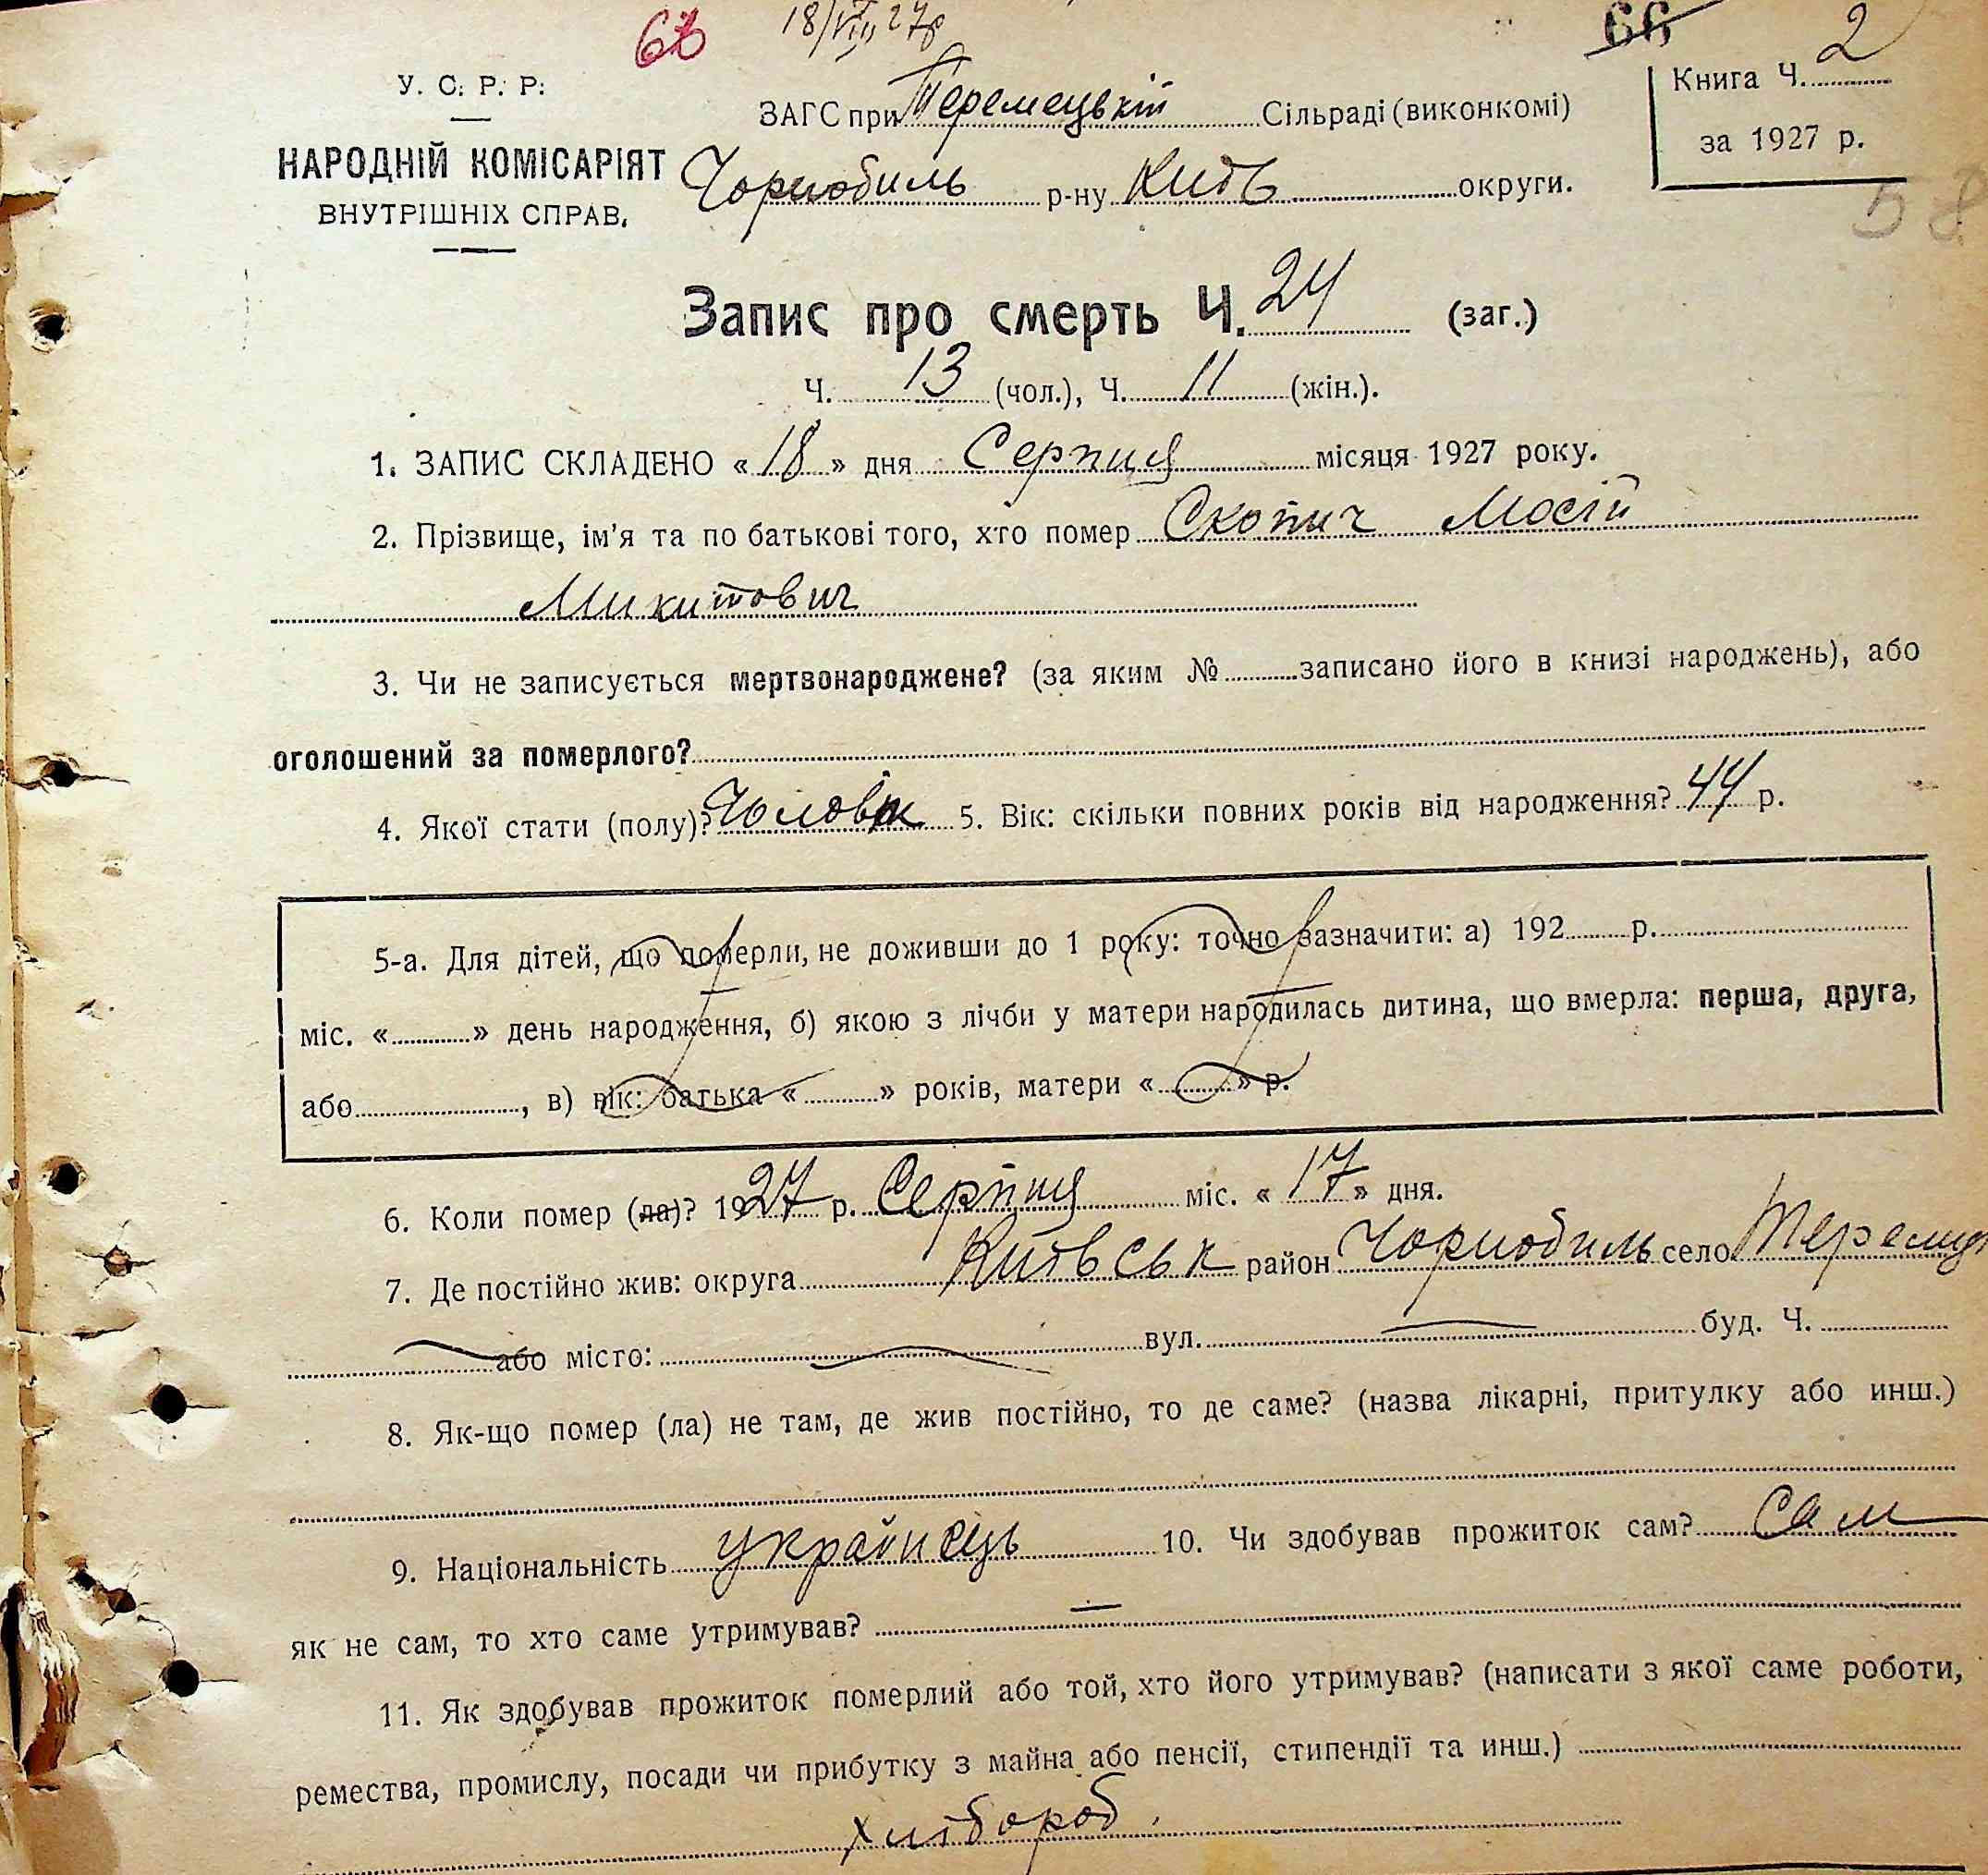 18/VIII 27р
66
2
У. С. Р. Р.
ЗАГС при Теремецькій Сільраді (виконкомі)
Книга Ч. 2
НАРОДНІЙ КОМІСАРІЯТ
за 1927 р.
ВНУТРІШНІХ СПРАВ.
Чорнобиль р-ну Київ округи.
58
Запис про смерть Ч. 24 (заг.)
Ч. 13 (чол.), Ч. 11 (жін.).
1. ЗАПИС СКЛАДЕНО « 18 » дня Серпня місяця 1927 року.
2. Прізвище, ім'я та по батькові того, хто помер Скопич Мосій
Микитович
3. Чи не записується мертвонароджене? (за яким № записано його в книзі народжень), або
оголошений за померлого?
4. Якої стати (полу)? Чоловік 5. Вік: скільки повних років від народження? 44 р.
5-а. Для дітей, що померли, не доживши до 1 року: точно зазначити: а) 192 р.
міс. « » день народження, б) якою з лічби у матери народилась дитина, що вмерла: перша, друга,
або , в) вік: батька « » років, матери « » р.
6. Коли помер (ла)? 1927 р. Серпня міс. « 17 » дня.
7. Де постійно жив: округа Київськ район Чорнобиль село Теремці
або місто: вул. буд. Ч.
8. Як-що помер (ла) не там, де жив постійно, то де саме? (назва лікарні, притулку або инш.)
9. Національність українець 10. Чи здобував прожиток сам? Сам
як не сам, то хто саме утримував? —
11. Як здобував прожиток померлий або той, хто його утримував? (написати з якої саме роботи,
ремества, промислу, посади чи прибутку з майна або пенсії, стипендії та инш.)
хлібороб.